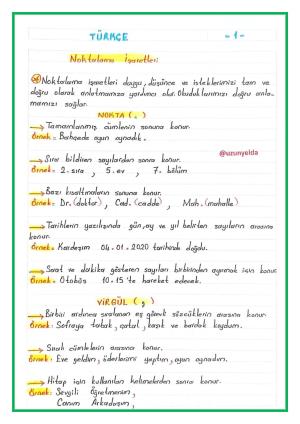 TÜRKÇE
-1-
Noktalama İşaretleri
Noktalama işaretleri duygu, düşünce ve isteklerimizi tam ve
doğru olarak anlatmamıza yardımcı olur. Okuduklarımızı doğru anla-
mamızı sağlar.
NOKTA (.)
→ Tamamlanmış cümlenin sonuna konur.
Örnek= Bahçede oyun oynadık.
@uzunyelda
→ Sıra bildiren sayılardan sonra konur.
Örnek= 2. sıra, 5. ev, 7. bölüm
→ Bazı kısaltmaların sonuna konur.
Örnek= Dr. (doktor), Cad. (cadde), Mah. (mahalle)
→ Tarihlerin yazılışında gün, ay ve yıl belirten sayıların arasına
konur.
Örnek= Kardeşim 04.01.2020 tarihinde doğdu.
→ Saat ve dakika gösteren sayıları birbirinden ayırmak için konur.
Örnek= Otobüs 10.15'te hareket edecek.
VİRGÜL (,)
→ Birbiri ardınca sıralanan eş görevli sözcüklerin arasına konur.
Örnek: Sofraya tabak, çatal, kaşık ve bardak koydum.
→ Sıralı cümlelerin arasına konur.
Örnek: Eve geldim, ödevlerimi yaptım, oyun oynadım.
→ Hitap için kullanılan kelimelerden sonra konur.
Örnek: Sevgili Öğretmenim,
Canım Arkadaşım,